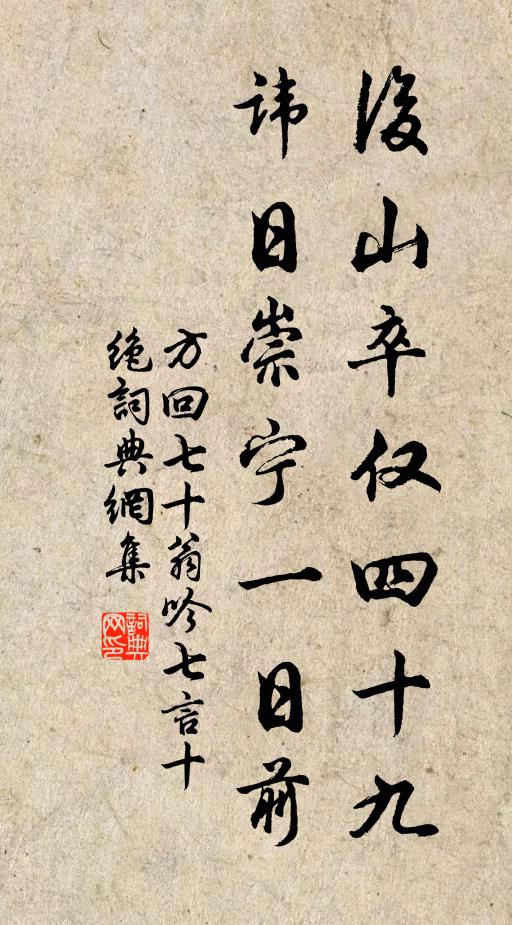 後山卒仅四十九
讳日崇宁一日前
方回七十翁吟七言十
絶詞典網集
詞典
网印